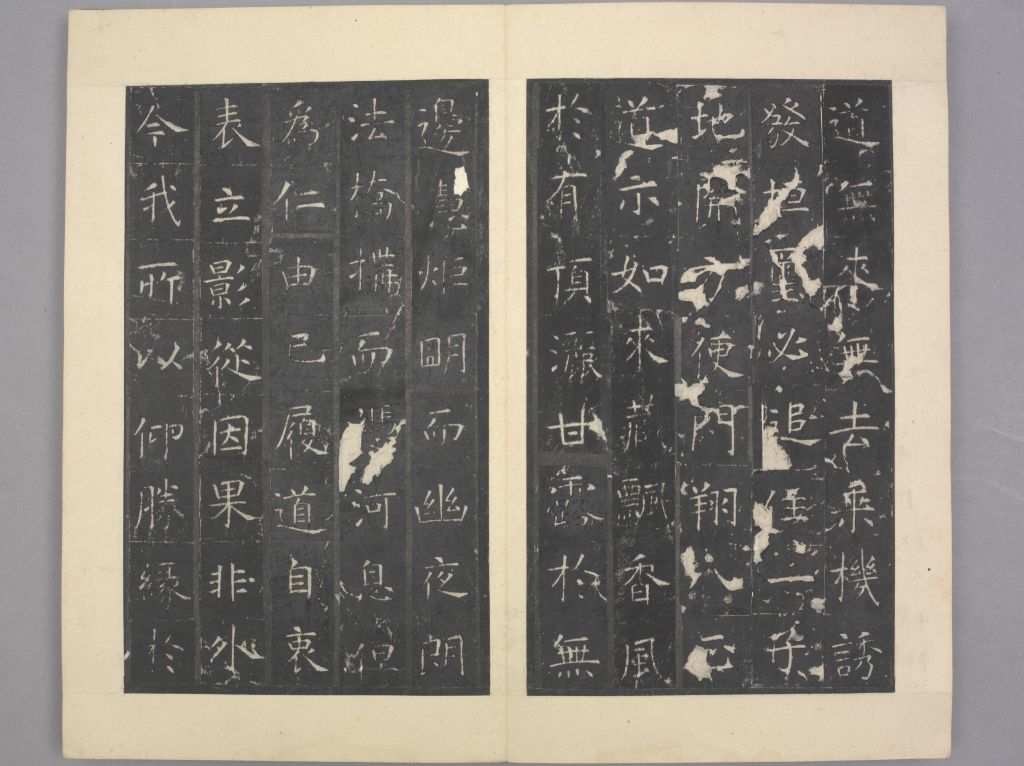 道無來無去乘機誘
發必追住一子
地開方便門翔八正
道示如來藏飄香風
於有頂灑甘露於無
邊慧炬明而幽夜朗
法橋構而河息但
為仁由己履道自衷
表立影從因果非外
今我所以仰勝緣於